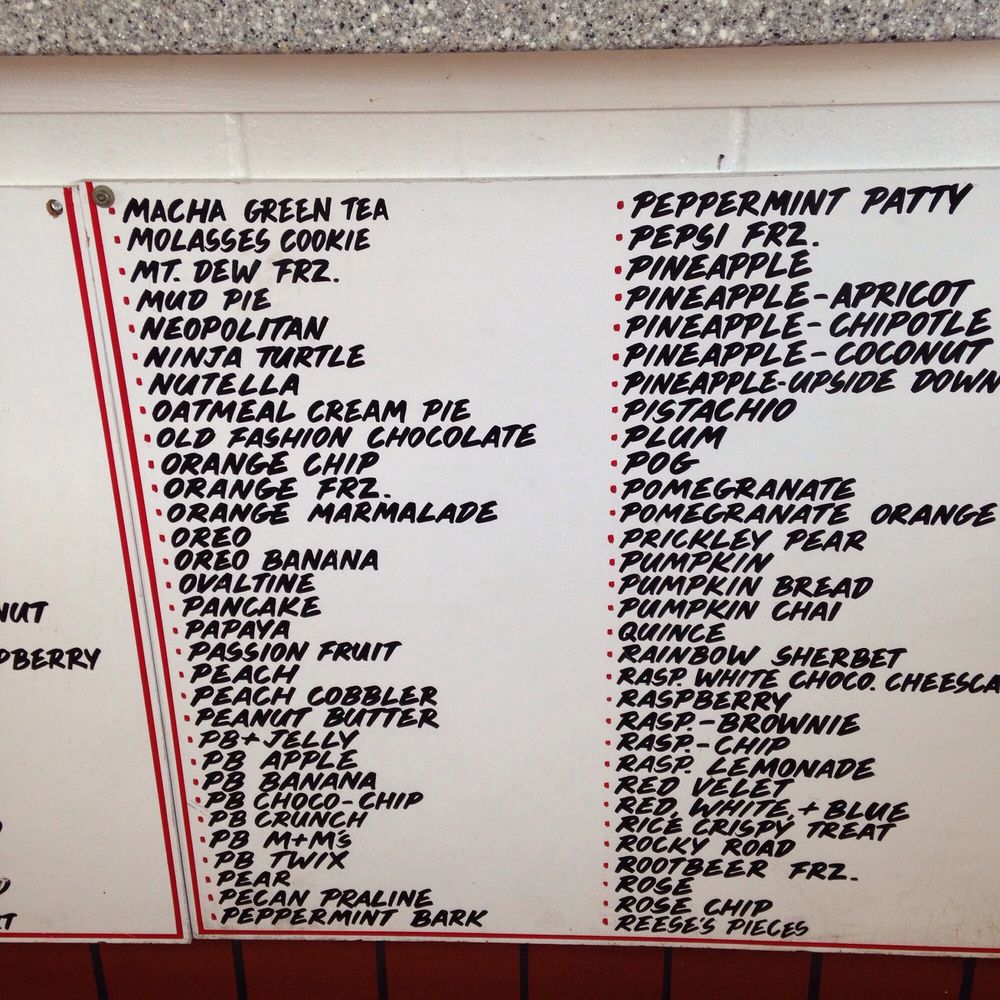 NUT
PBERRY
MACHA GREEN TEA
MOLASSES COOKIE
MT. DEW FRZ.
MUD PIE
NEOPOLITAN
NINJA TURTLE
NUTELLA
OATMEAL CREAM PIE
OLD FASHION CHOCOLATE
ORANGE CHIP
ORANGE FRZ.
ORANGE MARMALADE
OREO
OREO BANANA
OVALTINE
PANCAKE
PAPAYA
PASSION FRUIT
PEACH
PEACH COBBLER
PEANUT BUTTER
PB+JELLY
PB APPLE
PB BANANA
PB CHOCO-CHIP
PB CRUNCH
PB M+M's
PB TWIX
PEAR
PECAN PRALINE
PEPPERMINT BARK
PEPPERMINT PATTY
PEPSI FRZ.
PINEAPPLE
PINEAPPLE-APRICOT
PINEAPPLE-CHIPOTLE
PINEAPPLE-COCONUT
PINEAPPLE-UPSIDE DOWN
PISTACHIO
PLUM
POG
POMEGRANATE
POMEGRANATE ORANGE
PRICKLEY PEAR
PUMPKIN
PUMPKIN BREAD
PUMPKIN CHAI
QUINCE
RAINBOW SHERBET
RASP. WHITE CHOCO. CHEESCA
RASPBERRY
RASP.-BROWNIE
RASP.-CHIP
RASP. LEMONADE
RED VELET
RED, WHITE, + BLUE
RICE CRISPY TREAT
ROCKY ROAD
ROOTBEER FRZ.
ROSE
ROSE CHIP
REESE'S PIECES